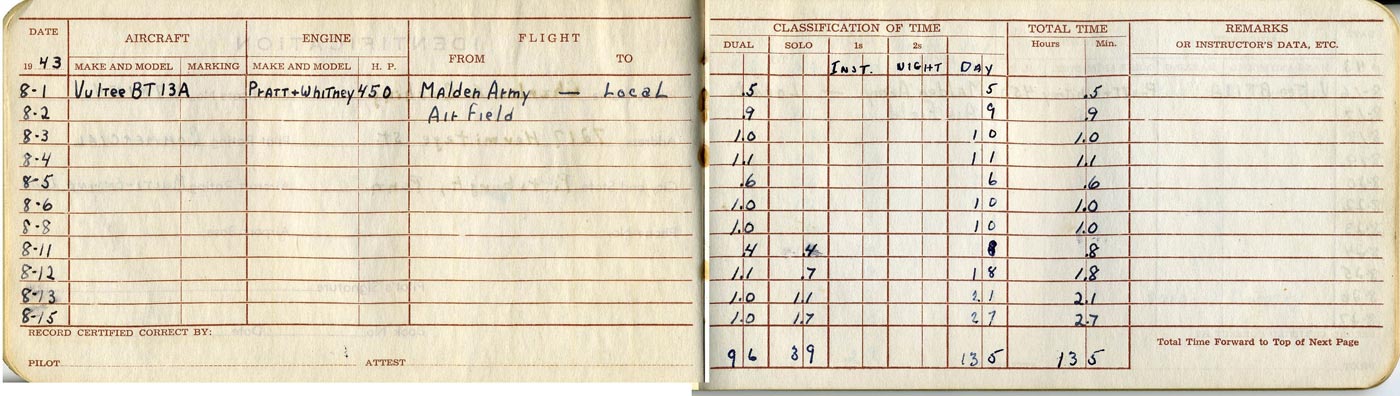 DATE AIRCRAFT ENGINE FLIGHT CLASSIFICATION OF TIME TOTAL TIME REMARKS
FROM TO DUAL SOLO 1s 2s Hours Min. OR INSTRUCTOR'S DATA, ETC.
19 43 MAKE AND MODEL MARKING MAKE AND MODEL H. P. INST. NIGHT DAY
8-1 Vultee BT 13A Pratt + Whitney 450 Malden Army — Local .5 5 .5
8-2 Air Field .9 9 .9
8-3 1.0 1 0 1.0
8-4 1.1 1 1 1.1
8-5 .6 6 .6
8-6 1.0 1 0 1.0
8-8 1.0 1 0 1.0
8-11 .4 .4 8 .8
8-12 1.1 .7 1 8 1.8
8-13 1.0 1.1 2 1 2.1
8-15 1.0 1.7 2 7 2.7
RECORD CERTIFIED CORRECT BY: Total Time Forward to Top of Next Page
PILOT ATTEST 9 6 3 9 13 5 13 5